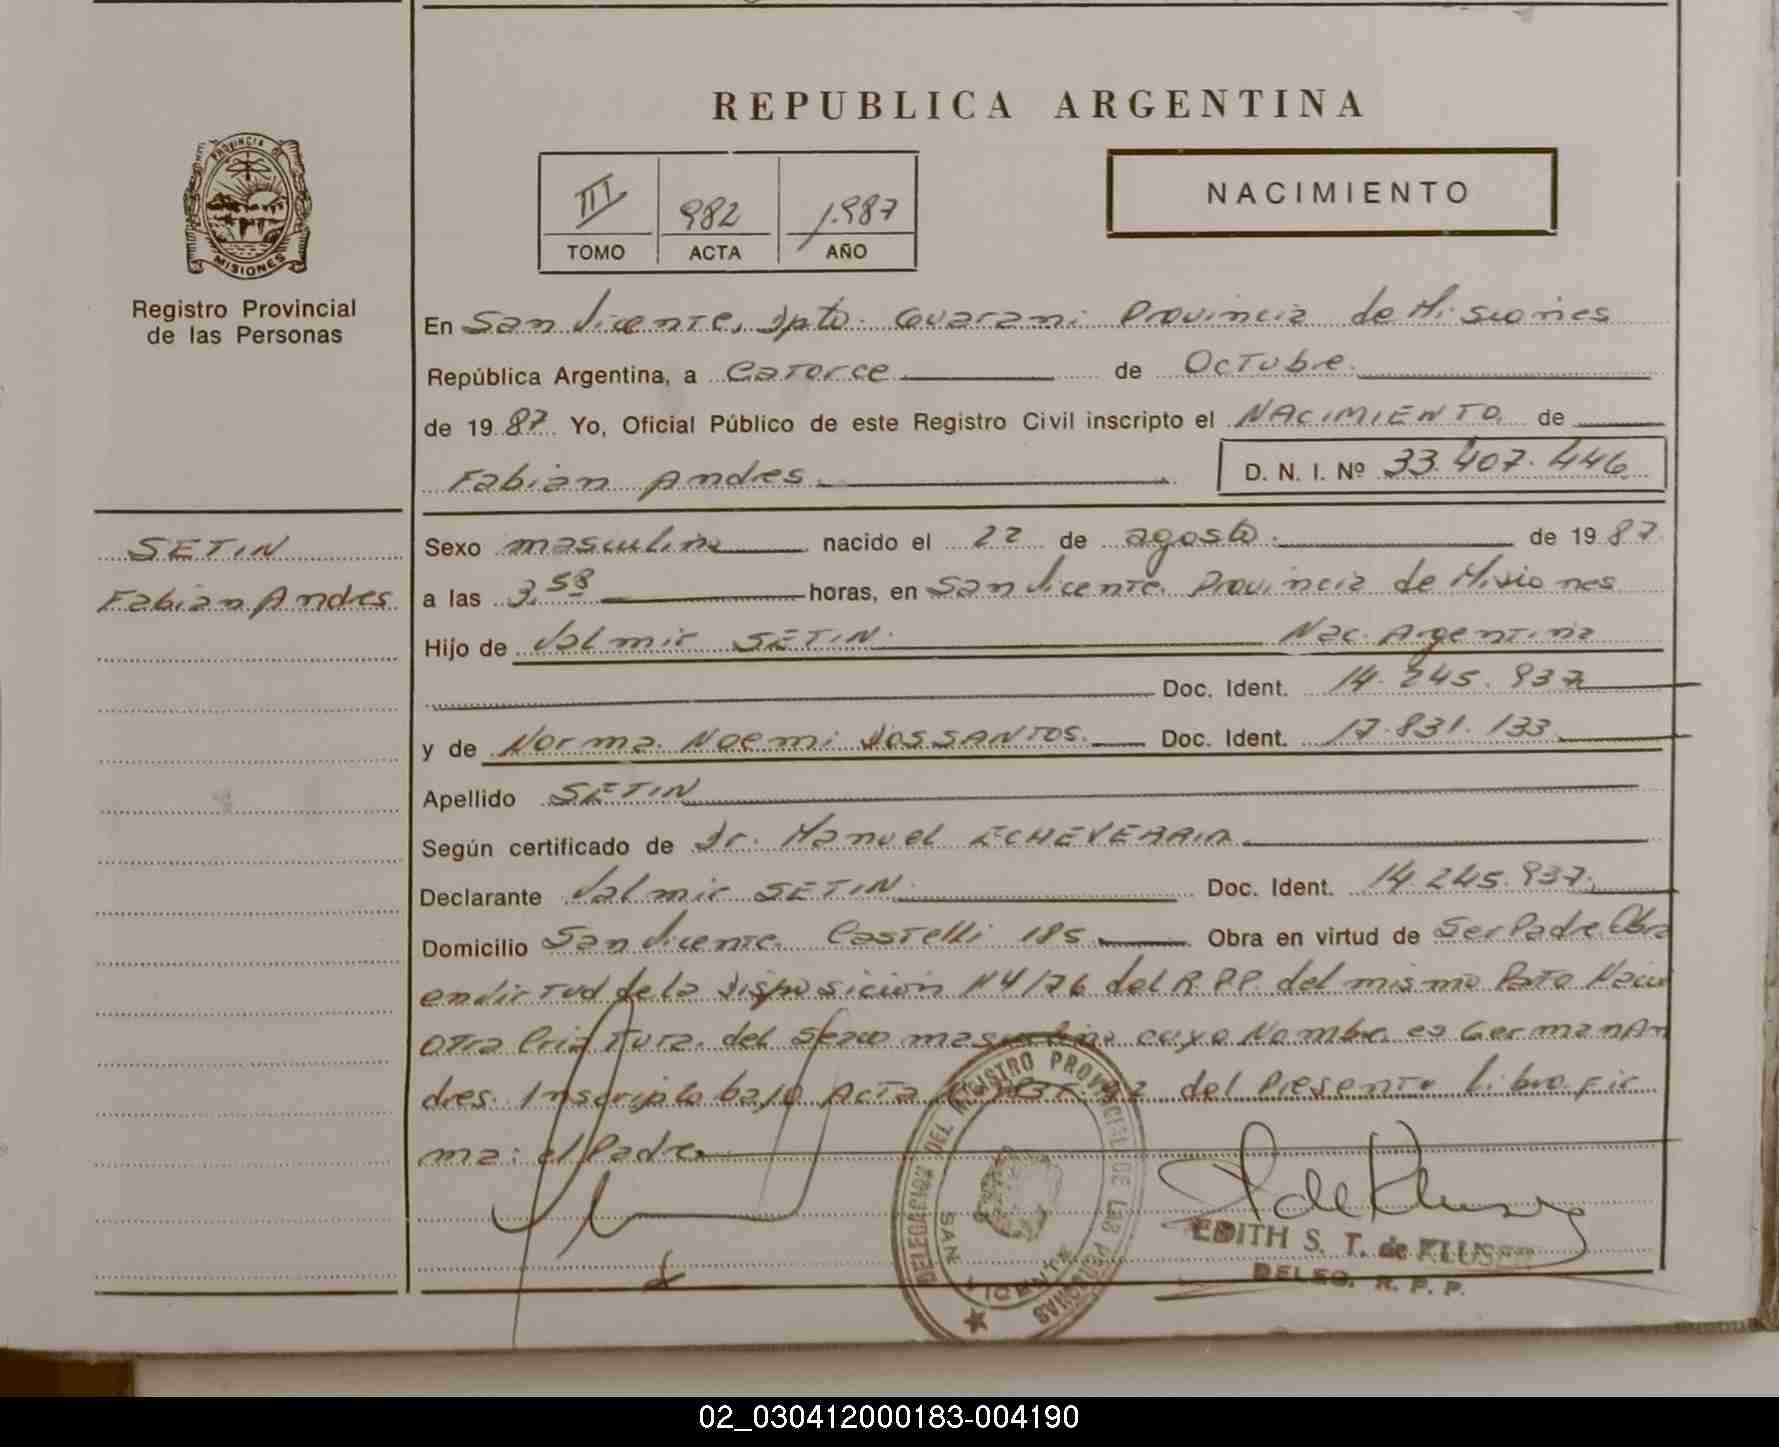 REPUBLICA ARGENTINA
PROVINCIA DE
MISIONES
Registro Provincial
de las Personas
III 982 1.987
TOMO ACTA AÑO
NACIMIENTO
En San Vicente, Dpto. Guarani Provincia de Misiones
República Argentina, a Catorce de Octubre
de 1987 Yo, Oficial Público de este Registro Civil inscripto el NACIMIENTO de
Fabian Andres D. N. I. Nº 33.407.446
SETIN
Fabian Andres
Sexo masculino nacido el 22 de agosto de 1987
a las 3,58 horas, en San Vicente. Provincia de Misiones
Hijo de Valmir SETIN. Nac. Argentina
Doc. Ident. 14.245.937
y de Norma Noemi DOSSANTOS. Doc. Ident. 17.831.133
Apellido SETIN
Según certificado de Dr. Manuel ECHEVERRIA
Declarante Valmir SETIN. Doc. Ident. 14.245.937
Domicilio San Vicente. Castelli 185 Obra en virtud de Ser Padre. Obra
en virtud de la Disposición Nº4/76 del R.P.P. del mismo Parto Nacio
otra Criatura. del Sexo masculino cuyo Nombre es German An
dres. Inscripto bajo Acta del Presente Libro. Fir
ma: el Padre
DELEGACION DEL REGISTRO PROVINCIAL DE LAS PERSONAS
SAN VICENTE
EDITH S. T. de KLUSER
DELEG. R. P. P.
02_030412000183-004190